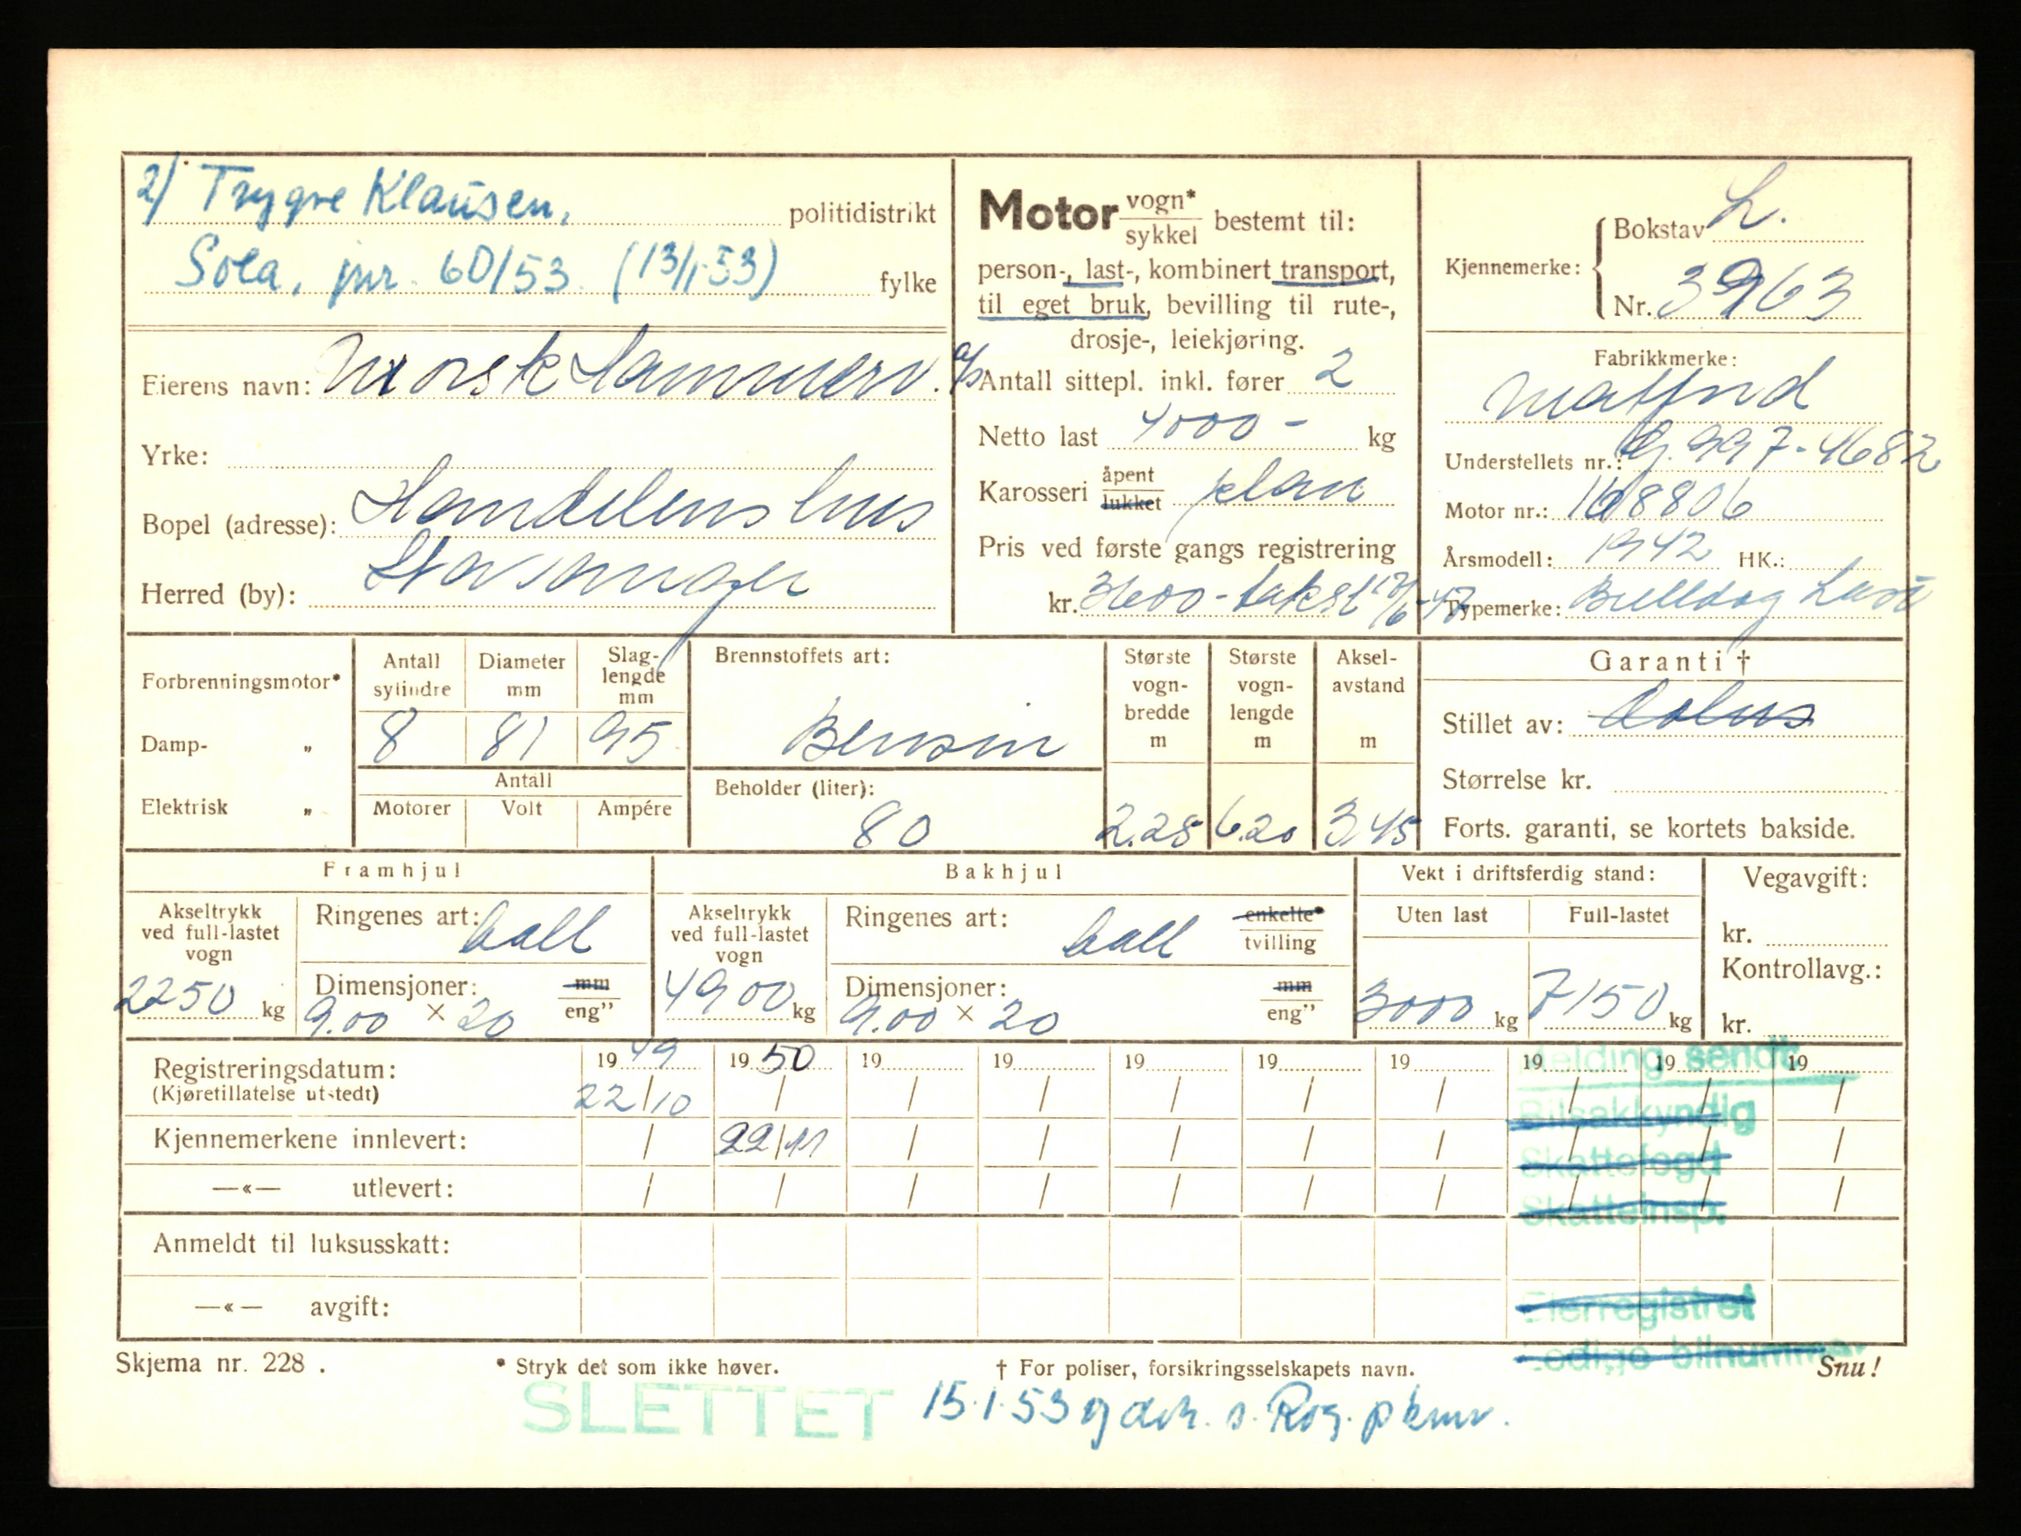 2) Trygve Klausen, politidistrikt
Sola, jnr. 60/53. (13/1-53) fylke
Eierens navn: Norsk Hammerv. a/s
Yrke:
Bopel (adresse): Handelens hus
Herred (by): Stavanger
Motor vogn* sykkel bestemt til:
person-, last-, kombinert transport,
til eget bruk, bevilling til rute-,
drosje-, leiekjøring.
Antall sittepl. inkl. fører 2
Netto last 4000 - kg
Karosseri åpent lukket plan
Pris ved første gangs registrering
kr. 3600 - takst
Kjennemerke: Bokstav L.
Nr. 3963
Fabrikkmerke:
Matford
Understellets nr.: G. 997-4682
Motor nr.: 168806
Årsmodell: 1942 HK.:
Typemerke: Bulldog
Forbrenningsmotor*
Damp- „
Elektrisk „
Antall sylindre
Diameter mm
Slag-lengde mm
8 81 95
Antall
Motorer Volt Ampére
Brennstoffets art:
Bensin
Beholder (liter):
80
Største vogn-bredde m
2.25
Største vogn-lengde m
6.20
Aksel-avstand m
3.45
Garanti †
Stillet av:
Størrelse kr.
Forts. garanti, se kortets bakside.
Framhjul
Akseltrykk ved full-lastet vogn
2250 kg
Ringenes art: ball
Dimensjoner: mm eng”
9.00 × 20
Bakhjul
Akseltrykk ved full-lastet vogn
4900 kg
Ringenes art: ball enkelte* tvilling
Dimensjoner: mm eng”
9.00 × 20
Vekt i driftsferdig stand:
Uten last Full-lastet
3000 kg 7150 kg
Vegavgift:
kr.
Kontrollavg.:
kr.
Registreringsdatum: 19 49 19 50 19 19 19 19 19 19 19 19
(Kjøretillatelse utstedt) 22/10 / / / / / / / / /
Kjennemerkene innlevert: / 22/11 / / / / / / / /
—«— utlevert: / / / / / / / / / /
Anmeldt til luksusskatt:
—«— avgift:
Melding sendt:
Bilsakkyndig
Skattefogd
Skatteinsp.
Eierregistret
Ledige bilnummer
Skjema nr. 228 .
* Stryk det som ikke høver.
† For poliser, forsikringsselskapets navn.
Snu!
SLETTET 15.1.53